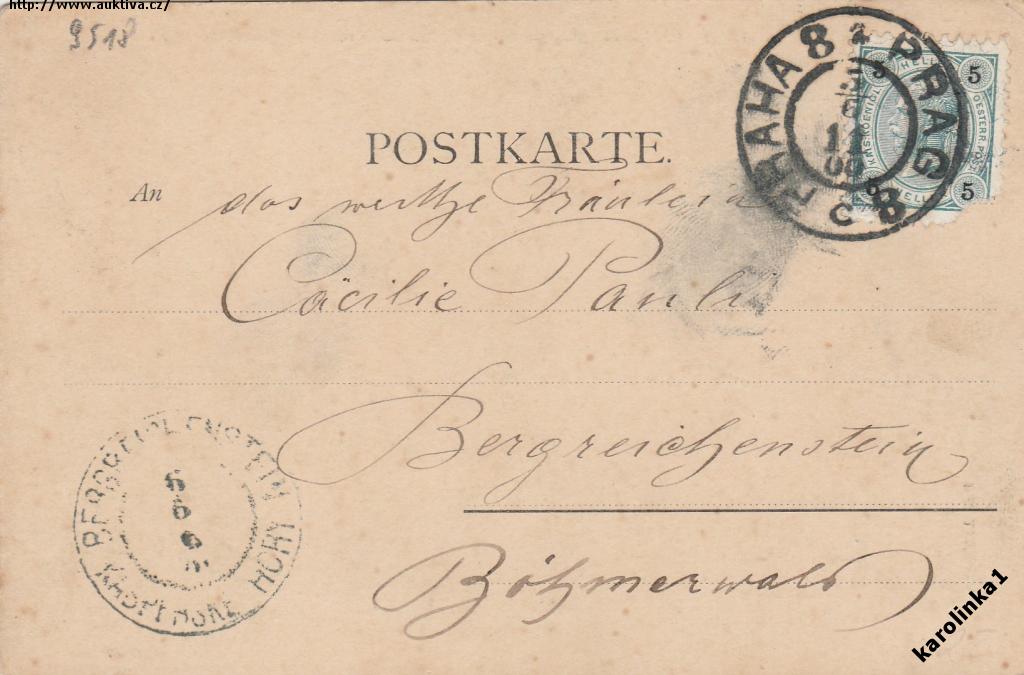 http://www.auktiva.cz/
9518
PRAHA 8 PRAG 8
5 HELLER 5
KAIS.KOENIGL. OESTERR.POST
5 HELLER 5
POSTKARTE.
An das werthe Fräulein
Cäcilie Pauli
Bergreichenstein
Böhmerwald
BERGREICHENSTEIN
6
6
KAŠPERSKÉ HORY
karolinka1